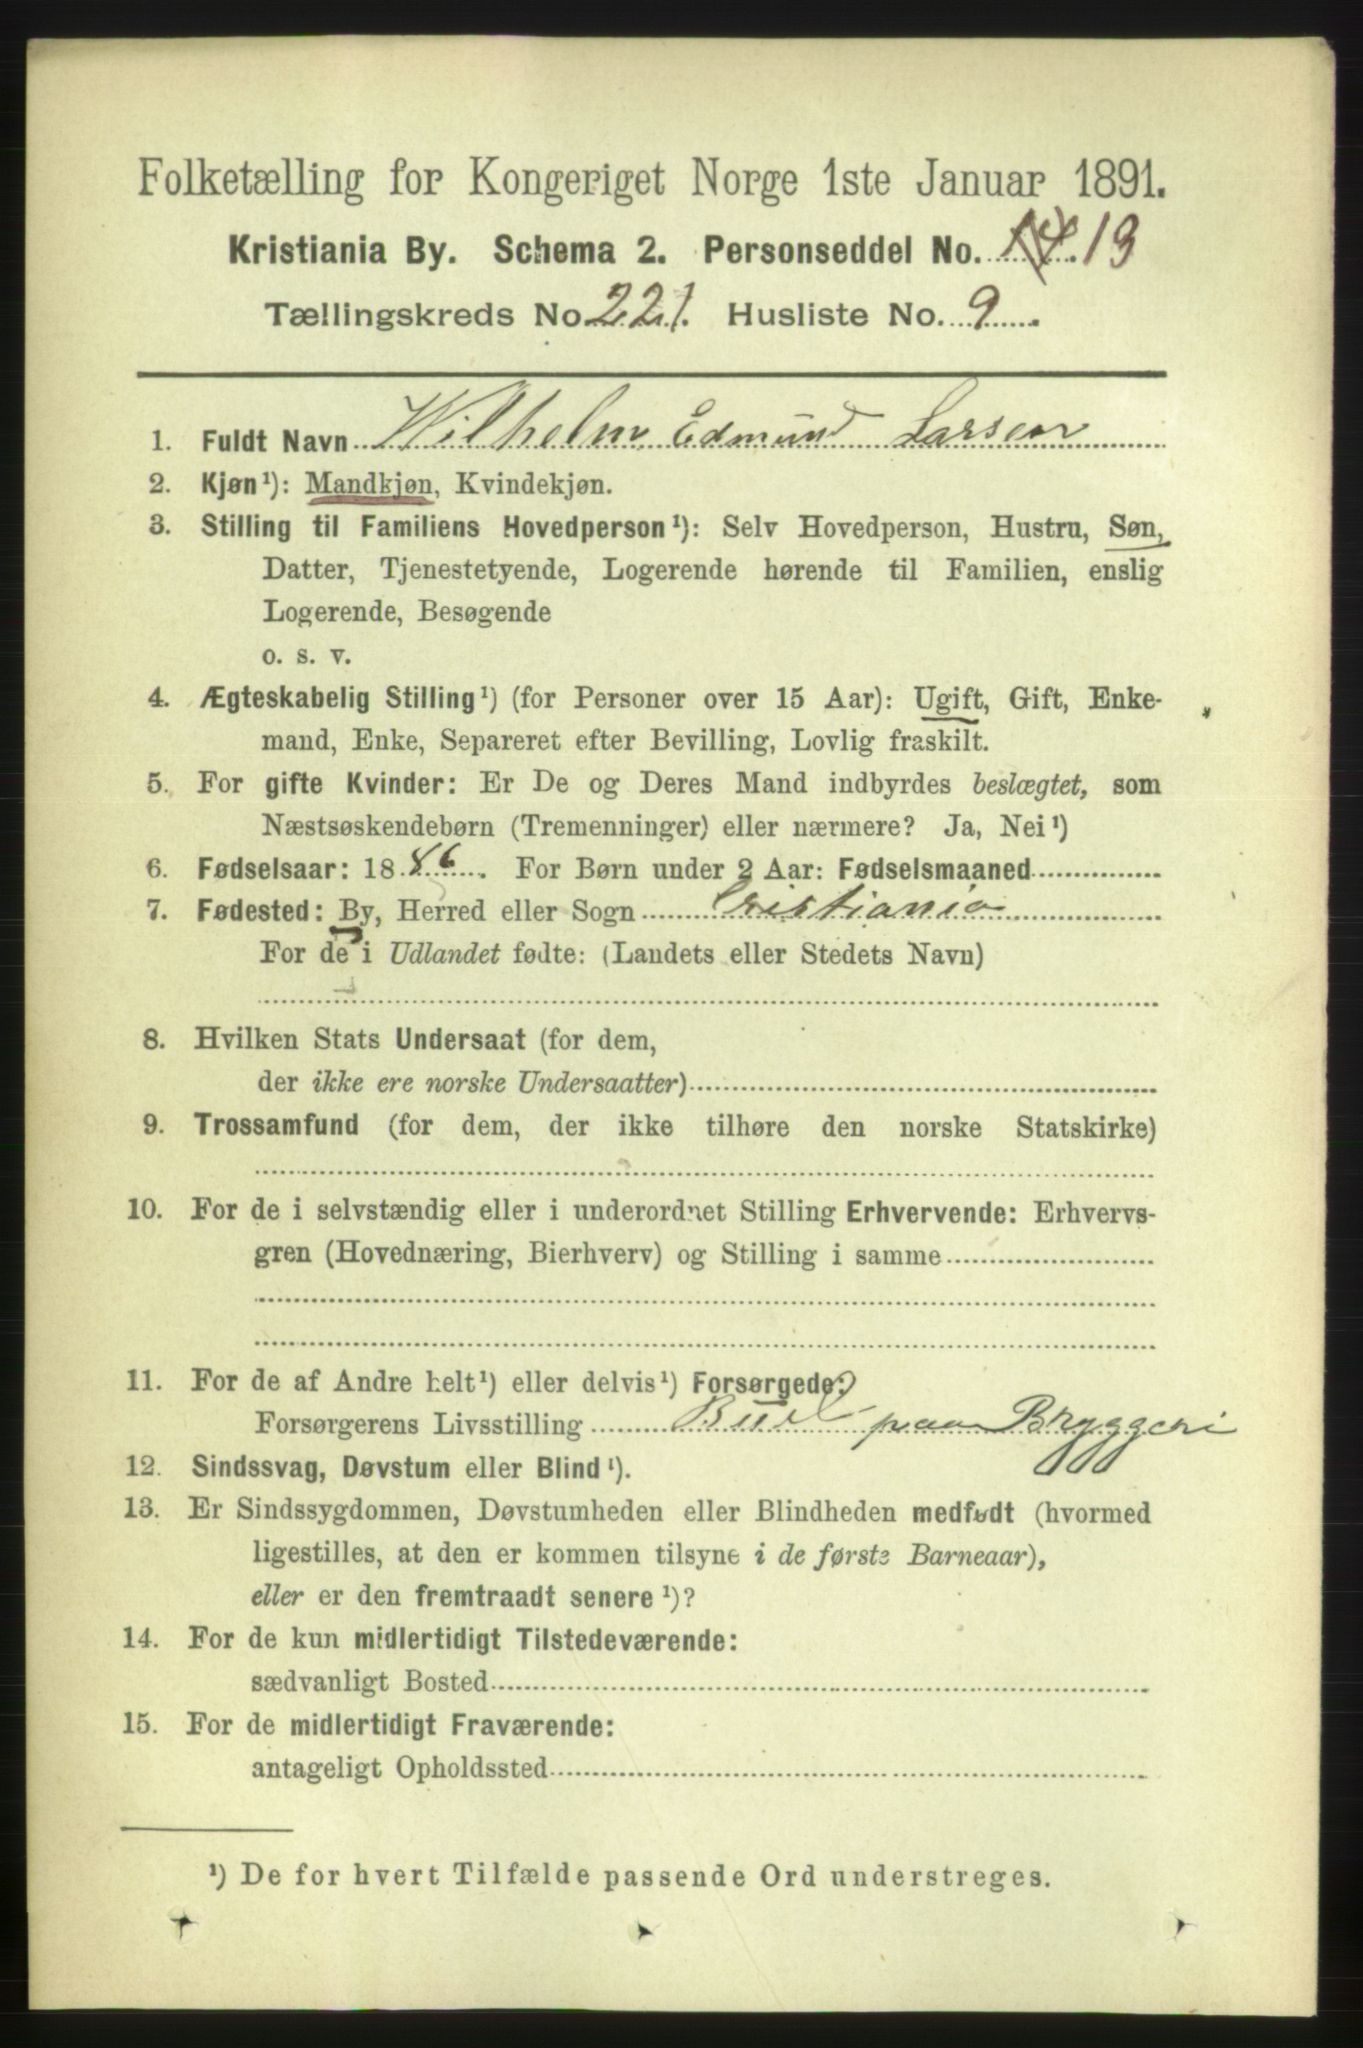 Folketælling for Kongeriget Norge 1ste Januar 1891.
Kristiania By. Schema 2. Personseddel No. 14 13
Tællingskreds No 221. Husliste No. 9
1. Fuldt Navn Wilhelm Edmund Larsen
2. Kjøn¹): Mandkjøn, Kvindekjøn.
3. Stilling til Familiens Hovedperson¹): Selv Hovedperson, Hustru, Søn,
Datter, Tjenestetyende, Logerende hørende til Familien, enslig
Logerende, Besøgende
o. s. v.
4. Ægteskabelig Stilling¹) (for Personer over 15 Aar): Ugift, Gift, Enke-
mand, Enke, Separeret efter Bevilling, Lovlig fraskilt.
5. For gifte Kvinder: Er De og Deres Mand indbyrdes beslægtet, som
Næstsøskendebørn (Tremenninger) eller nærmere? Ja, Nei¹)
6. Fødselsaar: 1886. For Børn under 2 Aar: Fødselsmaaned
7. Fødested: By, Herred eller Sogn Cristiania
For de i Udlandet fødte: (Landets eller Stedets Navn)
8. Hvilken Stats Undersaat (for dem,
der ikke ere norske Undersaatter)
9. Trossamfund (for dem, der ikke tilhøre den norske Statskirke)
10. For de i selvstændig eller i underordnet Stilling Erhvervende: Erhvervs-
gren (Hovednæring, Bierhverv) og Stilling i samme
11. For de af Andre helt¹) eller delvis¹) Forsørgede:
Forsørgerens Livsstilling Bud paa Bryggeri
12. Sindssvag, Døvstum eller Blind¹).
13. Er Sindssygdommen, Døvstumheden eller Blindheden medfødt (hvormed
ligestilles, at den er kommen tilsyne i de første Barneaar),
eller er den fremtraadt senere¹)?
14. For de kun midlertidigt Tilstedeværende:
sædvanligt Bosted
15. For de midlertidigt Fraværende:
antageligt Opholdssted
¹) De for hvert Tilfælde passende Ord understreges.